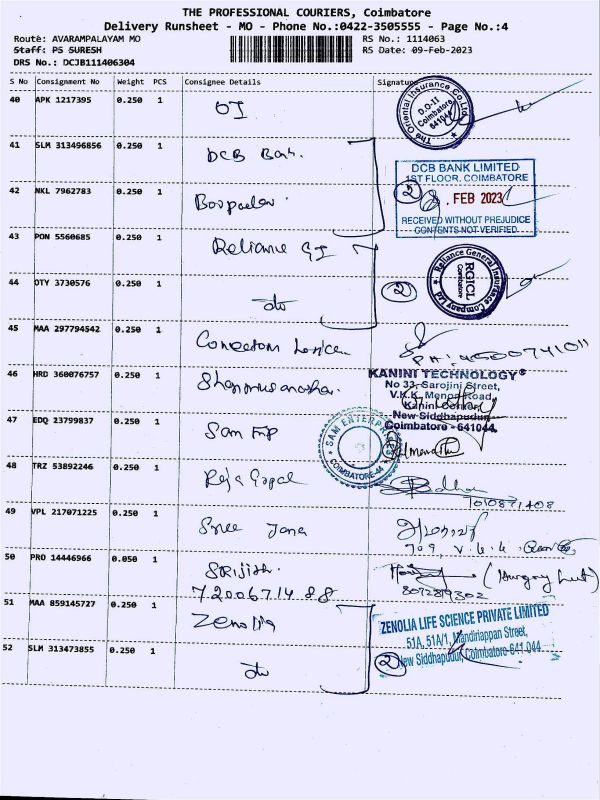 THE PROFESSIONAL COURIERS, Coimbatore
Delivery Runsheet - MO - Phone No.:0422-3505555 - Page No.:4
Route: AVARAMPALAYAM MO
RS No.: 1114063
Staff: PS SURESH
RS Date: 09-Feb-2023
DRS No.: DCJB111406304
S No Consignment No Weight PCS Consignee Details Signature
40 APK 1217395 0.250 1 OI
The Oriental Insurance Co. Ltd.
D.O-11
Coimbatore
641044
41 SLM 313496856 0.250 1 DCB Bank.
DCB BANK LIMITED
1ST FLOOR, COIMBATORE
42 NKL 7962783 0.250 1
2 FEB 2023
RECEIVED WITHOUT PREJUDICE
CONTENTS NOT VERIFIED
43 PON 5560685 0.250 1 Reliance GI
Reliance General Insurance Company Ltd
RGICL
Coimbatore
44 OTY 3730576 0.250 1 do
2
45 MAA 297794542 0.250 1
46 HRD 360076757 0.250 1
KANINI TECHNOLOGY
No 33, Sarojini Street,
V.K.K. Menon Road,
Kanini Corner,
New Siddhapudur,
Coimbatore - 641044.
47 EDQ 23799837 0.250 1 Sam Ent
SAM ENTERPRISES
COIMBATORE-44
48 TRZ 53892246 0.250 1 Raja Gopal
49 VPL 217071225 0.250 1 Sree Jana
709, V.K.K.
50 PRO 14446966 0.050 1 Srijith.
7200671488
8072819302
51 MAA 859145727 0.250 1 Zenolia
ZENOLIA LIFE SCIENCE PRIVATE LIMITED
51A, 51A/1, Mandiriappan Street,
New Siddhapudur, Coimbatore-641 044.
52 SLM 313473855 0.250 1 do
2